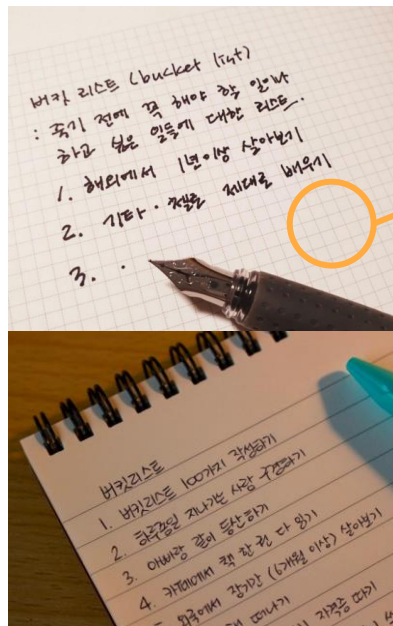 버킷 리스트 (bucket list)
: 죽기 전에 꼭 해야 할 일이나
하고 싶은 일들에 대한 리스트.
1. 해외에서 1년이상 살아보기
2. 기타·첼로 제대로 배우기
3. ·
버킷리스트
1. 버킷리스트 100가지 작성하기
2. 하루종일 지나가는 사람 구경하기
3. 아빠랑 같이 등산하기
4. 카페에서 책 한 권 다 읽기
외국에서 장기간 (6개월 이상) 살아보기
떠나기
자격증 따기